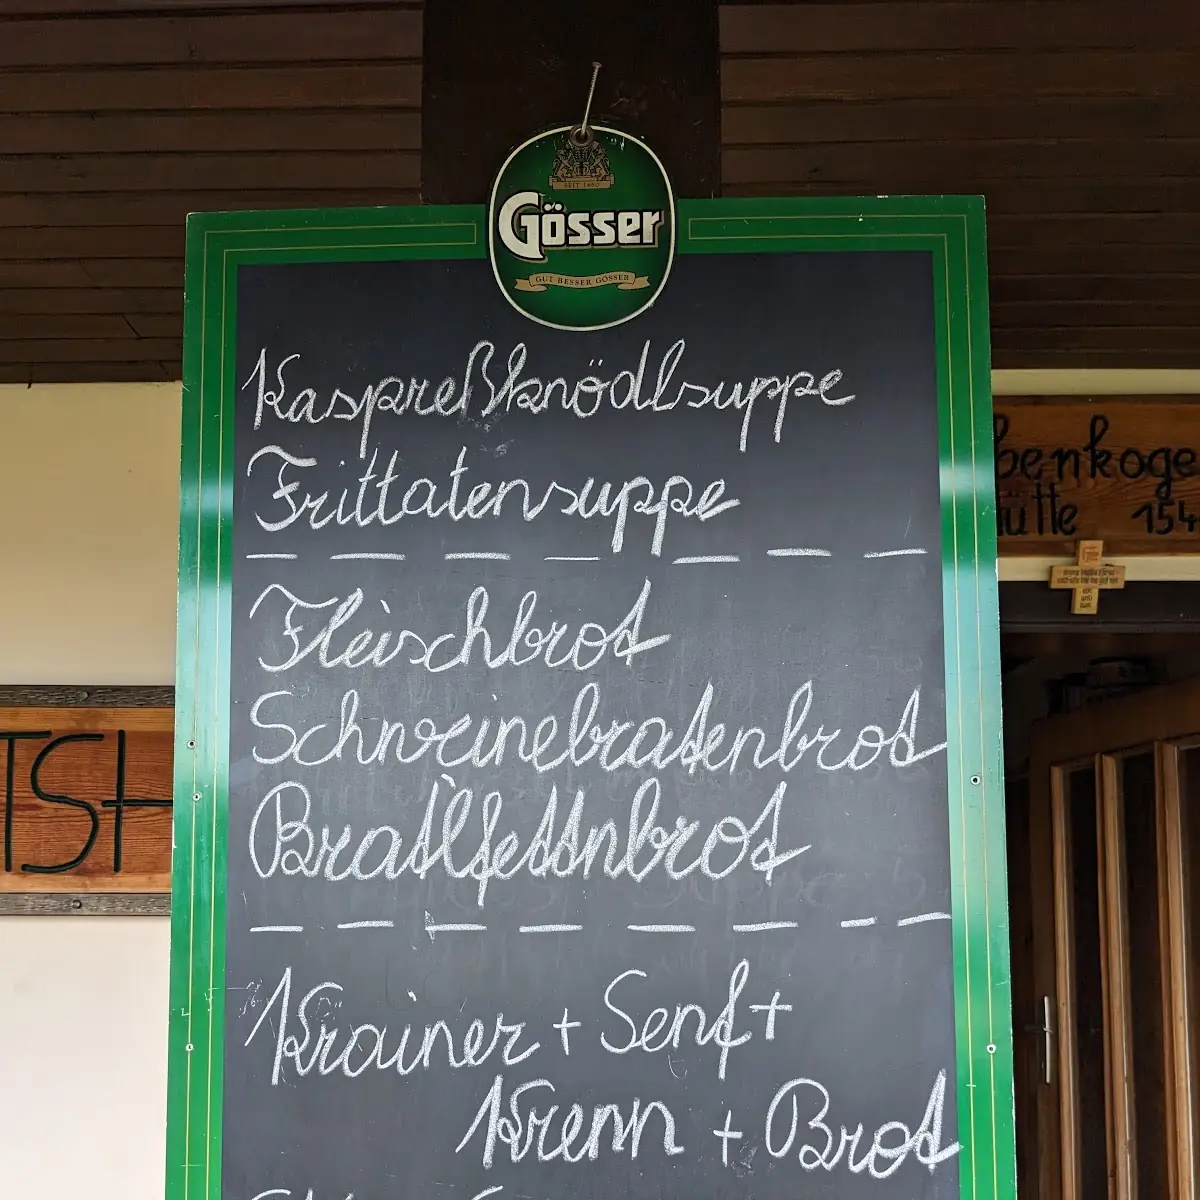 SEIT 1860
Gösser
GUT BESSER GÖSSER
Kaspreßknödlsuppe
Frittatensuppe
Fleischbrot
Schweinebratenbrot
Bratlfettnbrot
Krainer + Senf +
Krenn + Brot
benkoge
ütte 154
TSH